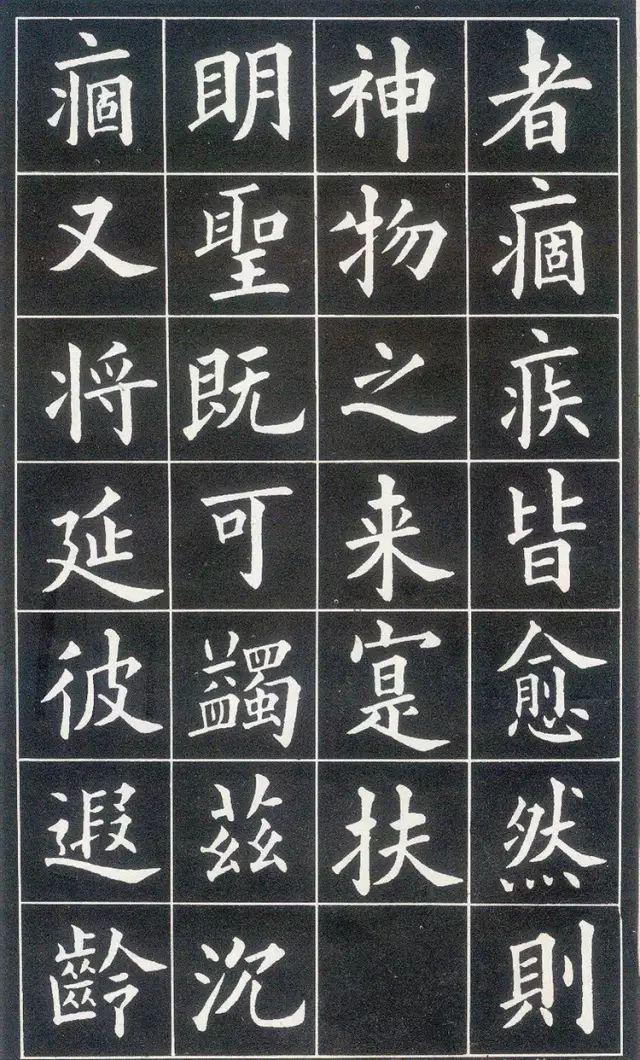 者痼疾皆愈然則
神物之来寔扶
眀聖既可蠲茲沉
痼又将延彼遐齡